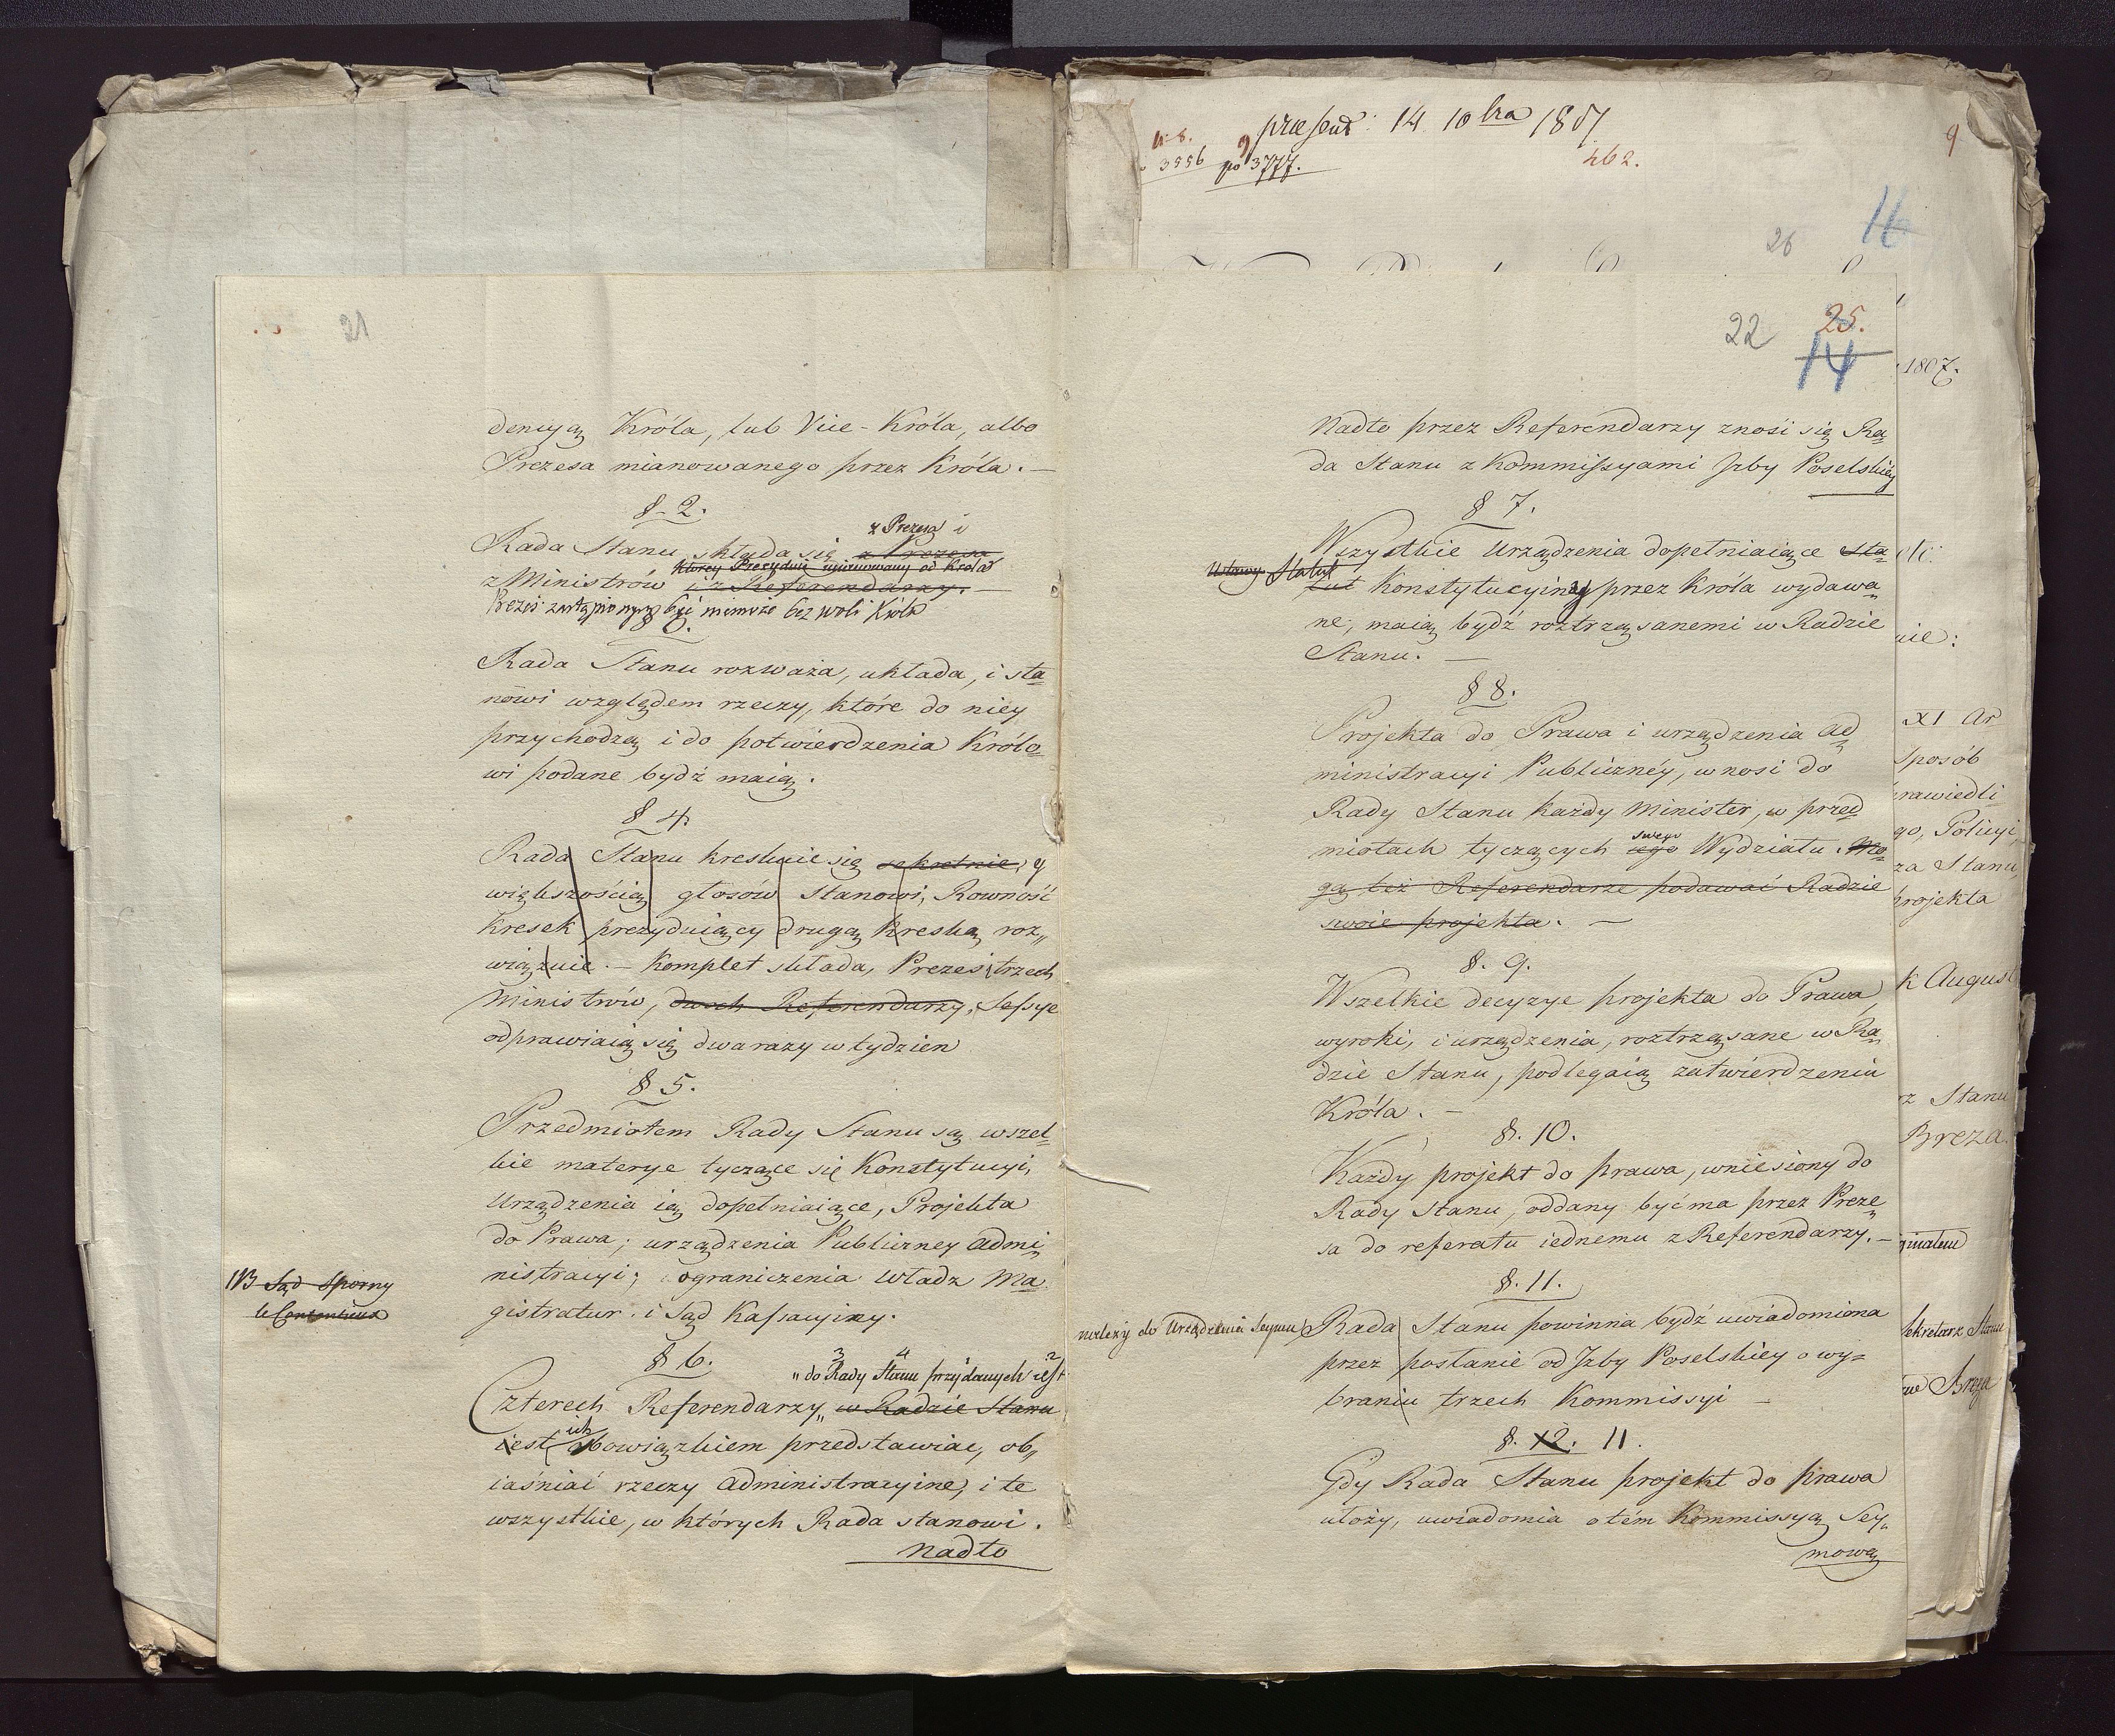 21
dencyą Króla, lub Vice-Króla, albo
Prezesa mianowanego przez Króla. —
§ 2.
z Prezesa i
Rada Stanu składa się z Prezesa
którey Prezyduie mianowany od Króla
z Ministrów i z Referendarzy. —
Prezes zastąpionym być niemoże bez woli Króla
Rada Stanu rozważa, układa, i sta=
nowi względem rzeczy, które do niey
przychodzą i do potwierdzenia Królo=
wi podane bydź maią.
§ 4.
Rada Stanu kreskuie się sekretnie, y
większością głosów stanowi, Rowność
kresek prezyduiący drugą kreską roz„
wiązuie. — Komplet składa, Prezes i trzech
Ministrów, dwoch Referendarzy, Sessye
odprawiaią się dwa razy w tydzien
§ 5.
Przedmiotem Rady Stanu są wszel=
kie materye tyczące się Konstytucyi,
Urządzenia ią dopełniaiące, Projekta
do Prawa; urządzenia Publiczney Admi=
nistracyi; ograniczenia Władz Ma=
gistratur i Sąd Kassacyiny.
NB Sąd Sporny
le Contentieux
§ 6.
3 4 2
„do Rady Stanu przydanych iest
Czterech Referendarzy „w Radzie Stanu
ich
iest obowiązkiem przedstawiac, ob„
iaśniać rzeczy administracyine, i te
wszystkie, w których Rada stanowi.
nadto
praesent: 14 10bra 1807
3556 po 3777.
462.
9
16
26
22 25.
14
Nadto przez Referendarzy znosi się Ra=
da Stanu z Kommissyami Jzby Poselskiéy
§ 7.
Wszystkie Urządzenia dopełniaiące Sta=
Ustawę Statut
tut Konstytucyiny przez Króla wydawa=
ne, maią bydź roztrząsanemi w Radzie
Stanu. —
§ 8.
Projekta do Prawa i urządzenia Ad=
ministracyi Publicznéy, wnosi do
Rady Stanu każdy Minister, w przed=
swego
miotach tyczących iego Wydziału. Mo=
gą też Referendarze podawać Radzie
swoie projekta. —
§. 9.
Wszelkie decyzye projekta do Prawa,
wyroki, i urządzenia, roztrząsane w Ra=
dzie Stanu, podlegaią zatwierdzeniu
Króla. —
§. 10.
Każdy projekt do prawa, wniesiony do
Rady Stanu, oddany być ma przez Preze=
sa do referatu iednemu z Referendarzy. —
§. 11.
należy do Urządzenia Seymu
Rada Stanu powinna bydź uwiadomiona
przez posłanie od Jzby Poselskiey o wy=
braniu trzech Kommissyi —
§. 12. 11.
Gdy Rada Stanu projekt do prawa
ułoży, uwiadomia o tém Kommissyą Sey„
mową
1807.
etc:
nie:
XI Ar
Sposób
rawiedli
go, Policyi,
za Stanu,
projekta
k August
rz Stanu
Breza.
ginalem
Sekretarz Stanu
Breza